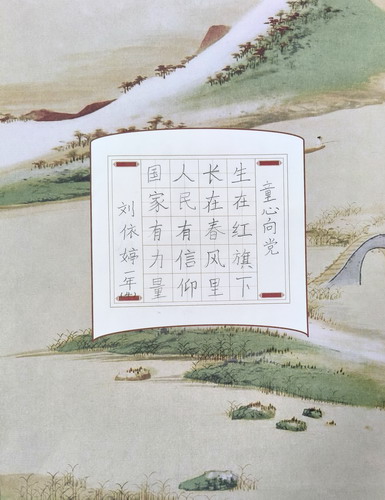 童心向党
生在红旗下
长在春风里
人民有信仰
国家有力量
刘依婷一年